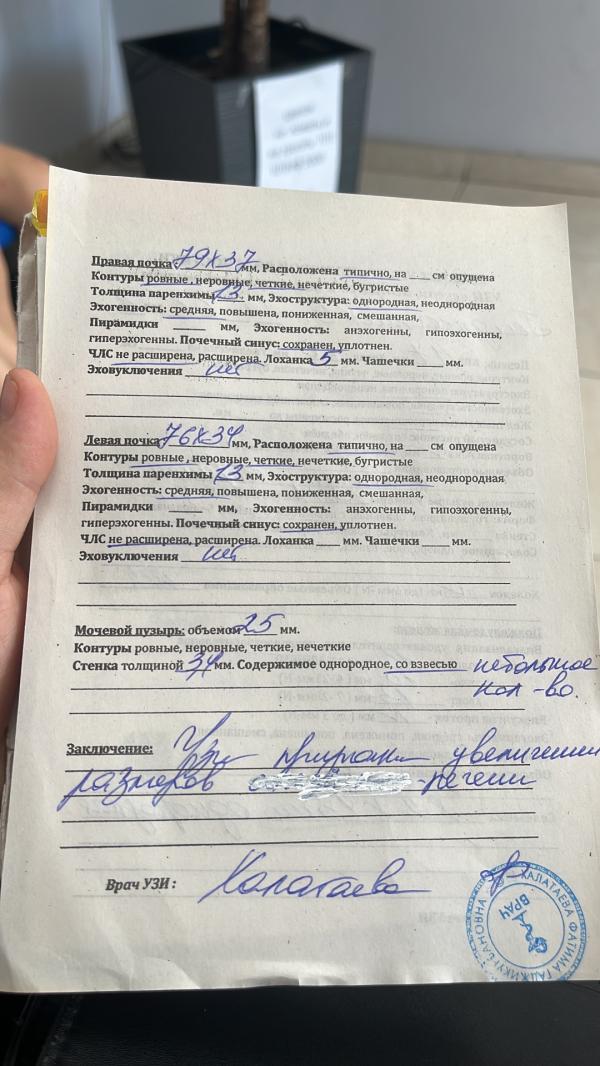 Правая почка 79х37 мм, Расположена типично, на ____ см опущена
Контуры ровные, неровные, четкие, нечеткие, бугристые
Толщина паренхимы 13 мм, Эхоструктура: однородная, неоднородная
Эхогенность: средняя, повышена, пониженная, смешанная,
Пирамидки _____ мм, Эхогенность: анэхогенны, гипоэхогенны,
гиперэхогенны. Почечный синус: сохранен, уплотнен.
ЧЛС не расширена, расширена. Лоханка 5 мм. Чашечки ____ мм.
Эховуключения нет
Левая почка 76х34 мм, Расположена типично, на ____ см опущена
Контуры ровные, неровные, четкие, нечеткие, бугристые
Толщина паренхимы 13 мм, Эхоструктура: однородная, неоднородная
Эхогенность: средняя, повышена, пониженная, смешанная,
Пирамидки _____ мм, Эхогенность: анэхогенны, гипоэхогенны,
гиперэхогенны. Почечный синус: сохранен, уплотнен.
ЧЛС не расширена, расширена. Лоханка ____ мм. Чашечки ____ мм.
Эховуключения нет
Мочевой пузырь: объемом 25 мм.
Контуры ровные, неровные, четкие, нечеткие
Стенка толщиной 3,4 мм. Содержимое однородное, со взвесью небольшое
кол-во.
Заключение: Узи признаки увеличения
размеров печени
Врач УЗИ: Халатаева
ХАЛАТАЕВА ФАТИМА ГАДЖИКУРБАНОВНА
ВРАЧ